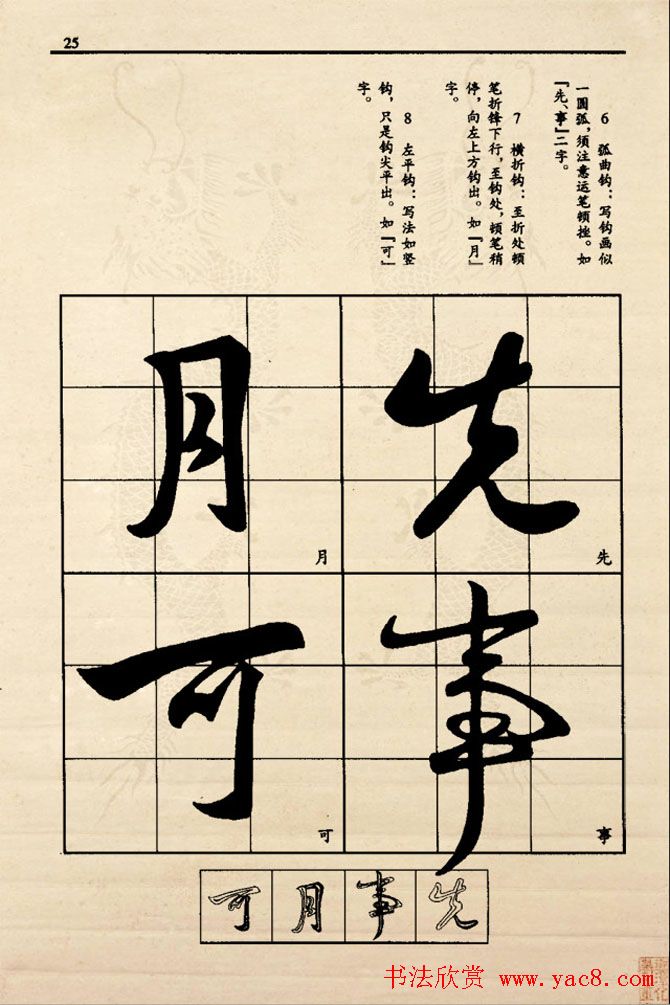 25
6 弧曲钩：写钩画似
一圆弧，须注意运笔顿挫。如
『先、事』二字。
7 横折钩：至折处顿
笔折锋下行，至钩处，顿笔稍
停，向左上方钩出。如『月』
字。
8 左平钩：写法如竖
钩，只是钩尖平出。如『可』
字。
先
先
事
事
月
月
可
可
可月事先
书法欣赏 www.yac8.com